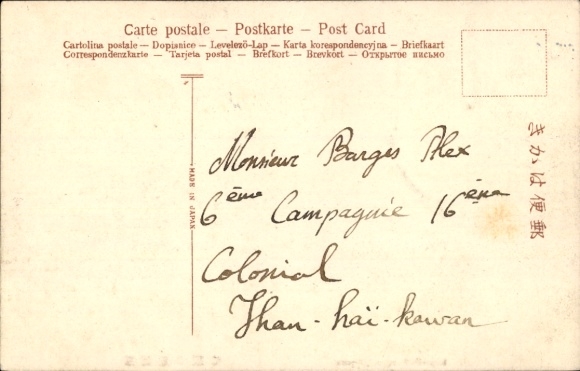 Carte postale — Postkarte — Post Card
Cartolina postale — Dopisnice — Levelező-Lap — Karta korespondencyjna — Briefkaart
Correspondenzkarte — Tarjeta postal — Brefkort — Brevkort — Открытое письмо
MADE IN JAPAN
きかは便郵
Monsieur Barges Alex
6ème Campagnie 16ème
Colonial
Shan-haï-kawan